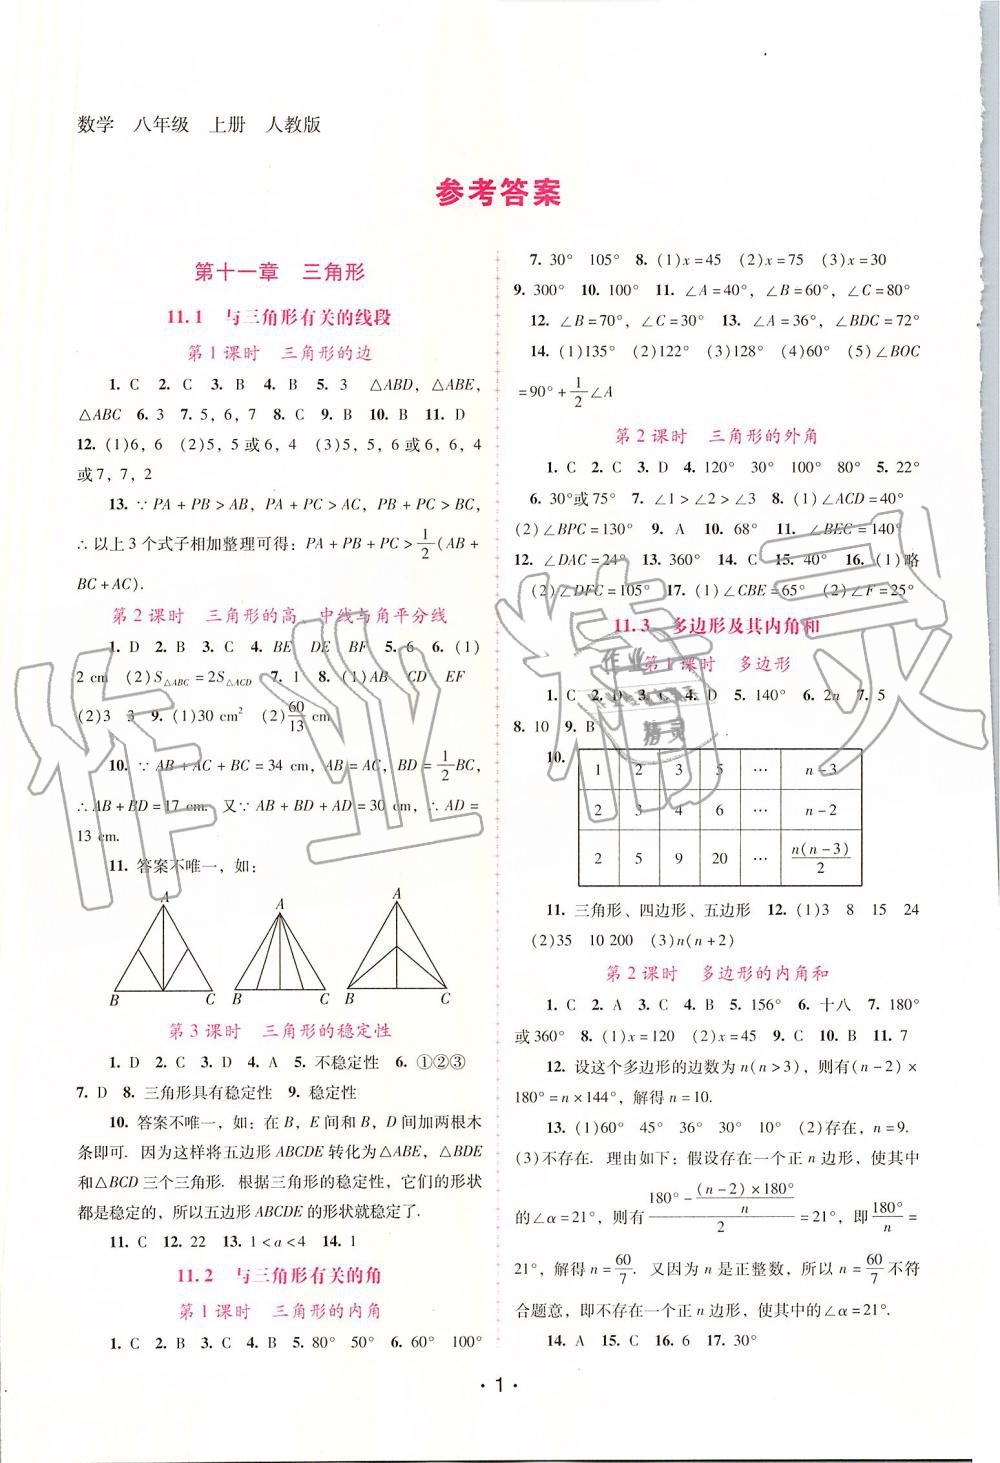 数学 八年级 上册 人教版
参考答案
第十一章 三角形
11.1 与三角形有关的线段
第1课时 三角形的边
1. C 2. C 3. B 4. B 5. 3 △ABD, △ABE,
△ABC 6. 3 7. 5, 6, 7 8. C 9. B 10. B 11. D
12. (1)6, 6 (2)5, 5或6, 4 (3)5, 5, 6或6, 6, 4
或7, 7, 2
13. ∵PA+PB>AB, PA+PC>AC, PB+PC>BC,
∴以上3个式子相加整理可得: PA+PB+PC>1/2(AB+
BC+AC).
第2课时 三角形的高、中线与角平分线
1. D 2. B 3. C 4. BE DE BF 5. 6 6. (1)
2 cm (2)S△ABC=2S△ACD 7. 1 8. (1)AB CD EF
(2)3 3 9. (1)30 cm² (2)60/13 cm
10. ∵AB+AC+BC=34 cm, AB=AC, BD=1/2BC,
∴AB+BD=17 cm. 又∵AB+BD+AD=30 cm, ∴AD=
13 cm.
11. 答案不唯一，如:
A A A
B C B C B C
第3课时 三角形的稳定性
1. D 2. C 3. D 4. A 5. 不稳定性 6. ①②③
7. D 8. 三角形具有稳定性 9. 稳定性
10. 答案不唯一，如: 在B, E间和B, D间加两根木
条即可. 因为这样将五边形ABCDE转化为△ABE, △BDE
和△BCD三个三角形. 根据三角形的稳定性，它们的形状
都是稳定的，所以五边形ABCDE的形状就稳定了.
11. C 12. 22 13. 1<a<4 14. 1
11.2 与三角形有关的角
第1课时 三角形的内角
1. C 2. B 3. C 4. B 5. 80° 50° 6. 60° 100°
7. 30° 105° 8. (1)x=45 (2)x=75 (3)x=30
9. 300° 10. 100° 11. ∠A=40°, ∠B=60°, ∠C=80°
12. ∠B=70°, ∠C=30° 13. ∠A=36°, ∠BDC=72°
14. (1)135° (2)122° (3)128° (4)60° (5)∠BOC
=90°+1/2∠A
第2课时 三角形的外角
1. C 2. C 3. D 4. 120° 30° 100° 80° 5. 22°
6. 30°或75° 7. ∠1>∠2>∠3 8. (1)∠ACD=40°
(2)∠BPC=130° 9. A 10. 68° 11. ∠BEC=140°
12. ∠DAC=24° 13. 360° 14. C 15. 40° 16. (1)略
(2)∠DFC=105° 17. (1)∠CBE=65° (2)∠F=25°
11.3 多边形及其内角和
第1课时 多边形
1. C 2. D 3. C 4. D 5. 140° 6. 2n 7. 5
8. 10 9. B
10.
1 2 3 5 … n-3
2 3 4 6 … n-2
2 5 9 20 … n(n-3)/2
11. 三角形、四边形、五边形 12. (1)3 8 15 24
(2)35 10 200 (3)n(n+2)
第2课时 多边形的内角和
1. C 2. A 3. C 4. B 5. 156° 6. 十八 7. 180°
或360° 8. (1)x=120 (2)x=45 9. C 10. B 11. 7
12. 设这个多边形的边数为n(n>3)，则有(n-2)×
180°=n×144°，解得n=10.
13. (1)60° 45° 36° 30° (2)存在，n=9.
(3)不存在. 理由如下: 假设存在一个正n边形，使其中
的∠α=21°，则有(180°-(n-2)×180°/n)/2=21°，即180°/n=
21°，解得n=60/7. 又因为n是正整数，所以n=60/7不符
合题意，即不存在一个正n边形，使其中的∠α=21°.
14. A 15. C 16. 6 17. 30°
· 1 ·
作业精灵
作业
精灵